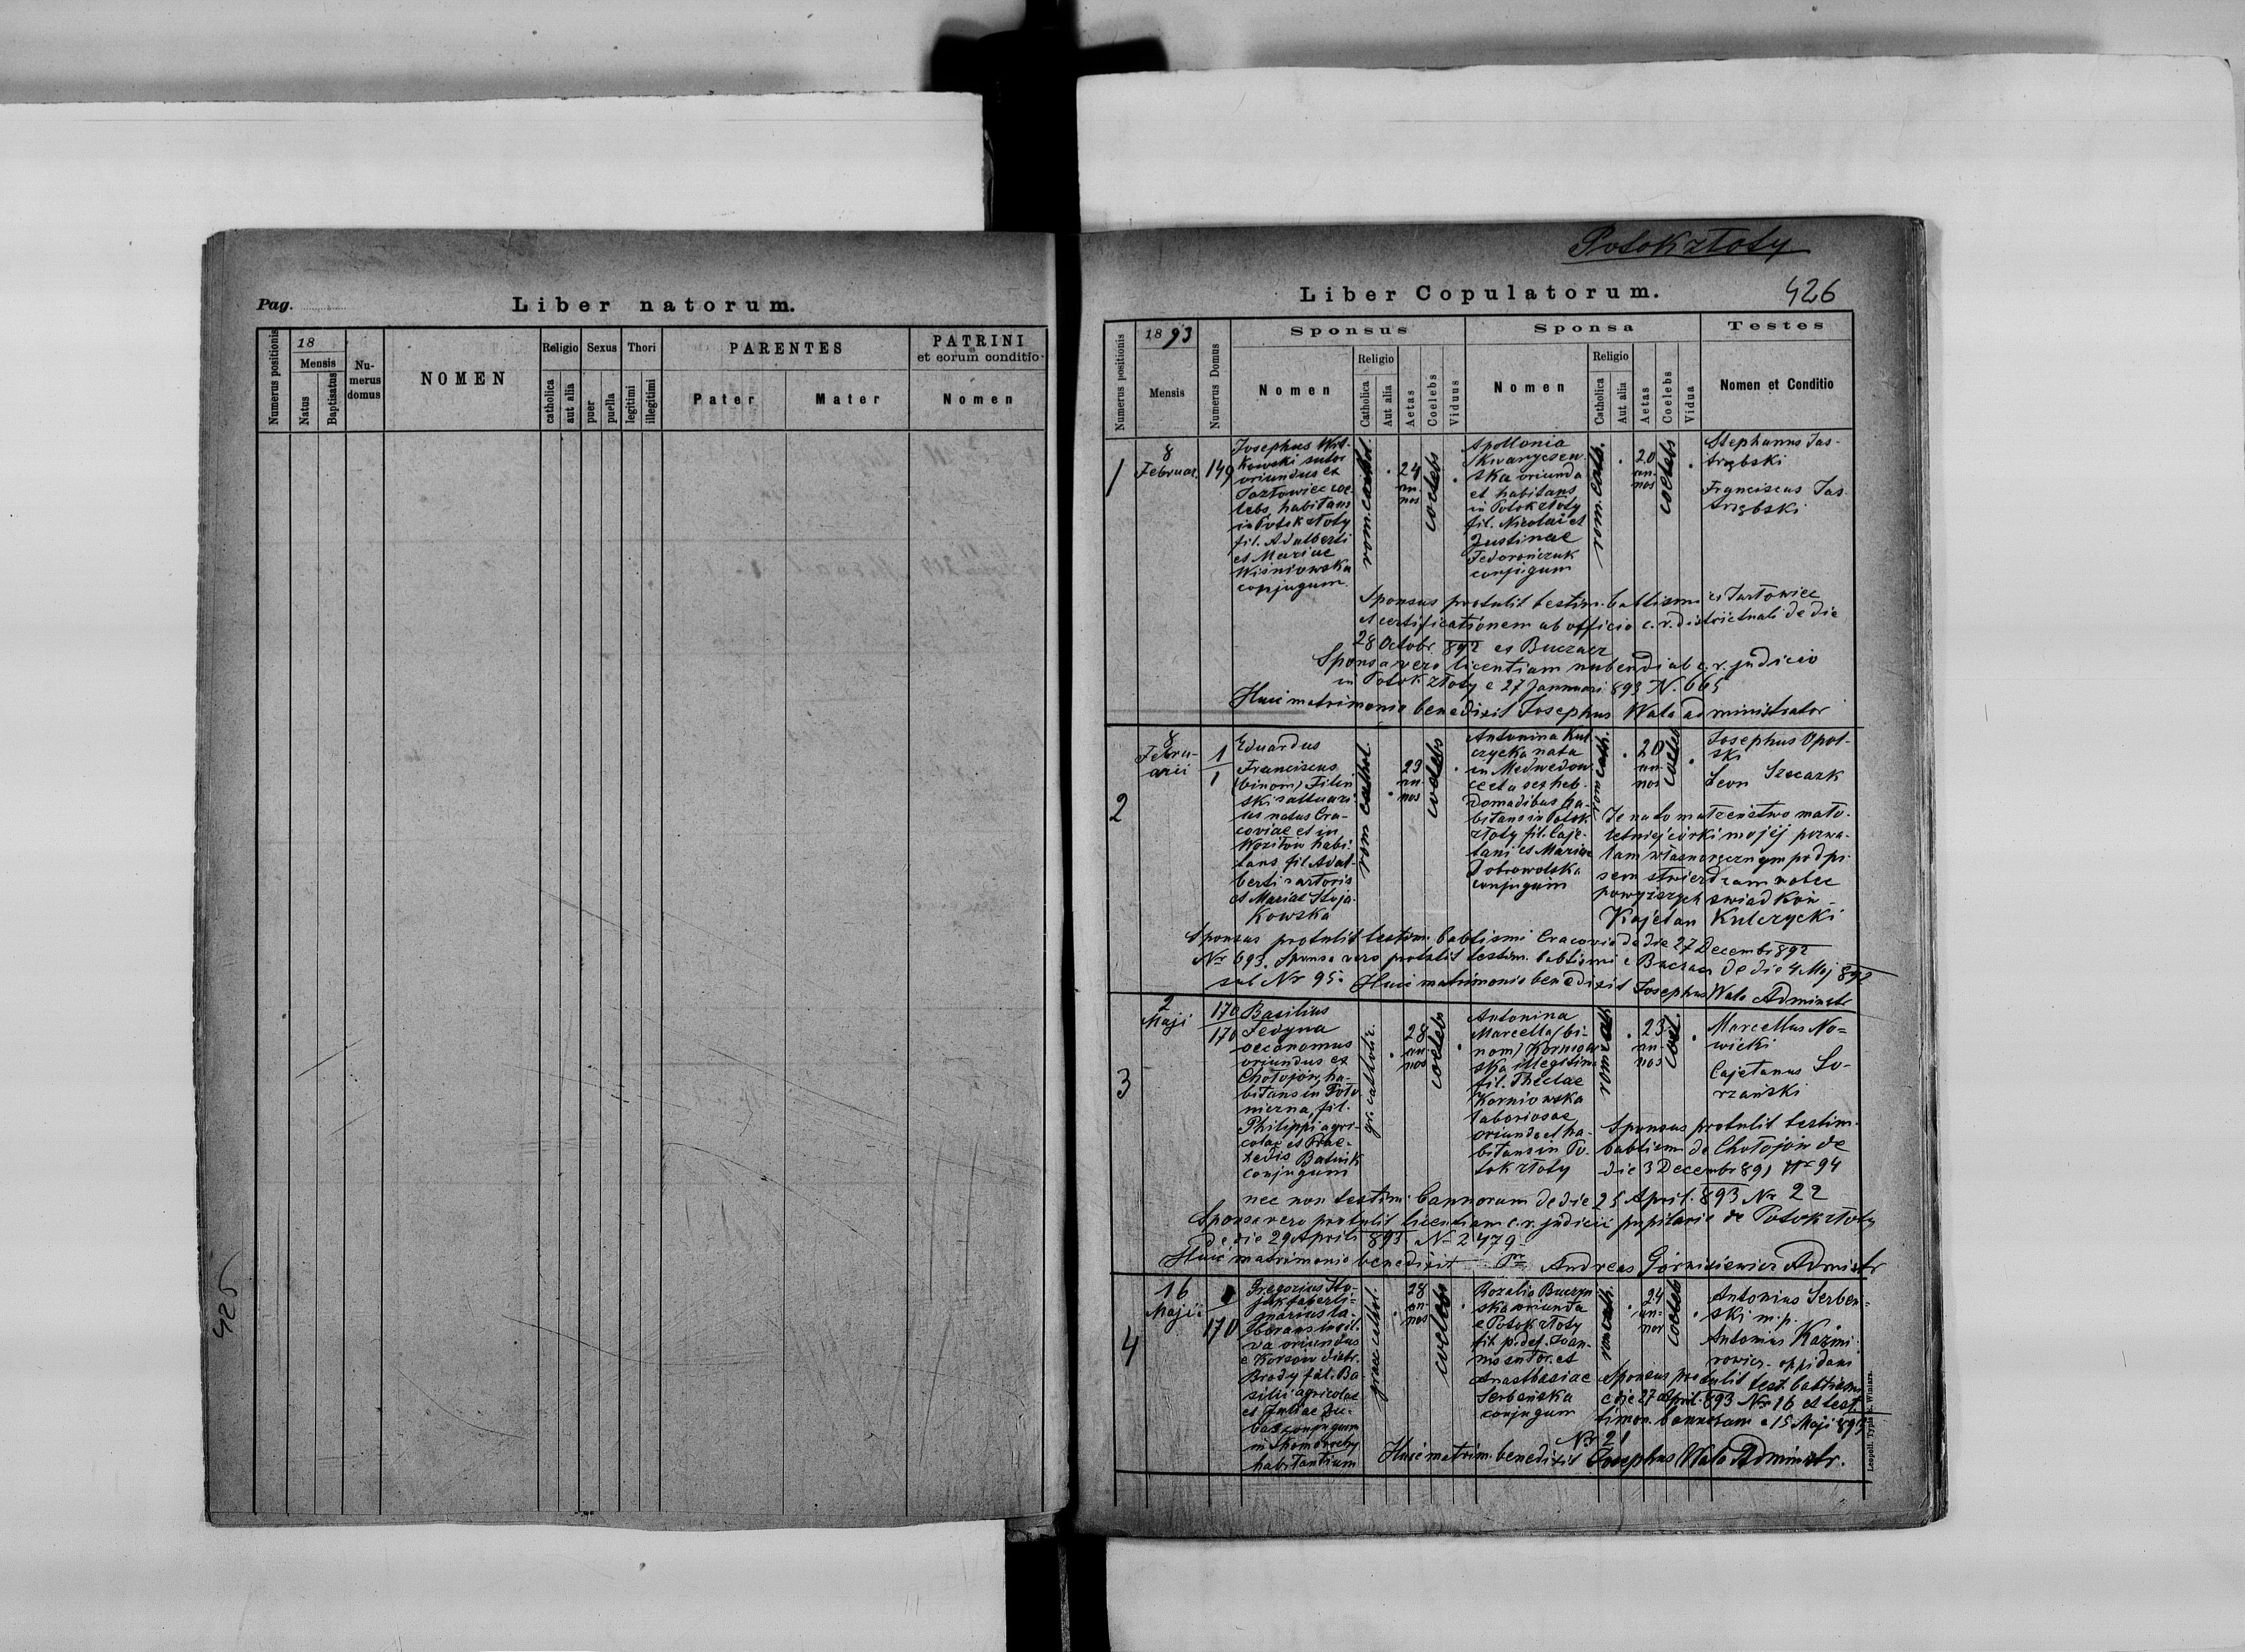 Pag.
Liber natorum.
Numerus positionis
18
Mensis
Natus
Baptisatus
Nu-
merus
domus
NOMEN
Religio
catholica
aut alia
Sexus
puer
puella
Thori
legitimi
illegitimi
PARENTES
Pater
Mater
PATRINI
et eorum conditio
Nomen
425
Potok złoty
Liber Copulatorum.
426
Numerus positionis
1893
Mensis
Numerus Domus
Sponsus
Nomen
Religio
Catholica
Aut alia
Aetas
Coelebs
Viduus
Sponsa
Nomen
Religio
Catholica
Aut alia
Aetas
Coelebs
Vidua
Testes
Nomen et Conditio
1
8
Februar.
149
Josephus Wit-
kowski sutor
oriundus ex
Jazłowiec coe-
lebs, habitans
in Potok złoty
fil. Adalberti
et Mariae
Wiśniowska
conjugum.
rom. cathol.
24
an-
nos
coelebs
Apollonia
Skwaryczew-
ska oriunda
et habitans
in Potok złoty
fil. Nicolai et
Justinae
Fedorończuk
conjugum
rom. cath.
20
an-
nos
coelebs
Stephanus Jas-
trzębski
Franciscus Jas-
trzębski
Sponsus protulit testim. babtismi ex Jazłowiec
et certificationem ab officio c. r. districtuali de die
28 Octobr. 892 ex Buczacz
Sponsa vero licentiam nubendi ab c. r. judicio
in Potok złoty e 27 Januari 893 N. 665
Huic matrimonio benedixit Josephus Wala administrator
2
8
Febru-
arii
1
1
Eduardus
Franciscus
(binom) Filin
ski
natus Cra-
coviae et in
habi-
tans fil. Adal-
berti sartoris
et Mariae Stoja-
kowska
rom cathol.
23
an-
nos
coelebs
Antonina Kul-
czycka nata
in Medwedow-
ce et a sex heb-
domadibus ha-
bitans in Potok
złoty fil. Caje-
tani et Mariae
Dobrowolska
conjugum
rom cath.
20
an-
nos
coeleb
Josephus Opol-
ski
Leon
Że na to małżeństwo mało-
letniej córki mojej pozwa-
lam własnoręcznym podpi-
sem stwierdzam wobec
powyższych świadków -
Kajetan Kulczycki
Sponsus protulit testim. babtismi Cracovia de die 27 Decembr 892
Nr 693. Sponsa vero protulit testim. babtismi e Buczacz de die 4 Maj 892
sub Nr 95. Huic matrimonio benedixit Josephus Wala Administr
3
2
Maji
170
170
Basilius
Fedyna
oeconomus
oriundus ex
Chołojów, ha-
bitans in Poto-
nierna, fil.
Philippi agri-
colae et Prae-
xedis Batiuk
conjugum
gr. catholic.
28
an-
nos
coelebs
Antonina
Marcella (bi-
nom) Korniow-
ska illegitim
fil. Theclae
Korniowska
laboriosae
oriunda et ha-
bitans in Po-
tok złoty
rom cath
23
an-
nos
coel.
Marcellus No-
wicki
Cajetanus So-
rzański
Sponsus protulit testim.
babtism de Chołojów de
die 3 Decembr 891 Nr 94
nec non testim. bannorum de die 25 April. 893 Nr 22
Sponsa vero protulit licentiam c. r. judicii pupilaris de Potok złoty
de die 29 Aprili 893 N- 2479-
Huic matrimonio benedixit Pr Andreas Górnisiewicz Administr
4
16
Maji
170
Gregorius Sto-
jak
la-
borans in sil-
va oriundus
e Korsow distr.
Brody fil. Ba-
silii agricolae
et Juliae Du-
bas conjugum
in
habitantium
graec cathol.
28
an-
nos
coelebs
Rozalia Buczyn-
ska oriunda
e Potok złoty
fil. p. def. Joan-
nis sutor. et
Anasthasiae
Serbeńska
conjugum
rom cath.
24
an-
nos
coeleb
Antonius Serben-
ski m.p.
Antonius Kaźmi-
rowicz - oppidani
Sponsus protulit test. babtismi
e die 27 April 893 Nr 16 et test
timon. bannorum e 15 Maji 893
Nr 21
Huic matrim. benedixit Josephus Wala Administr.
Leopoli. Typis K. Winiarz.